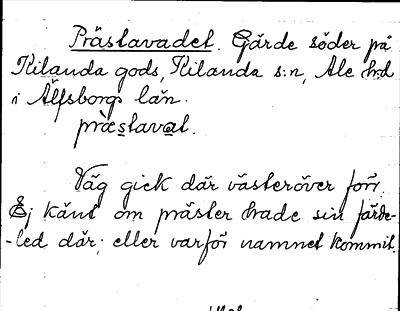 Prästavadet. Gärde söder på
Kilanda gods, Kilanda s:n, Ale hd
i Älfsborgs län.
præstavat.
Väg gick där västeröver förr.
Ej känt om präster hade sin färde-
-led där; eller varför namnet kommit.